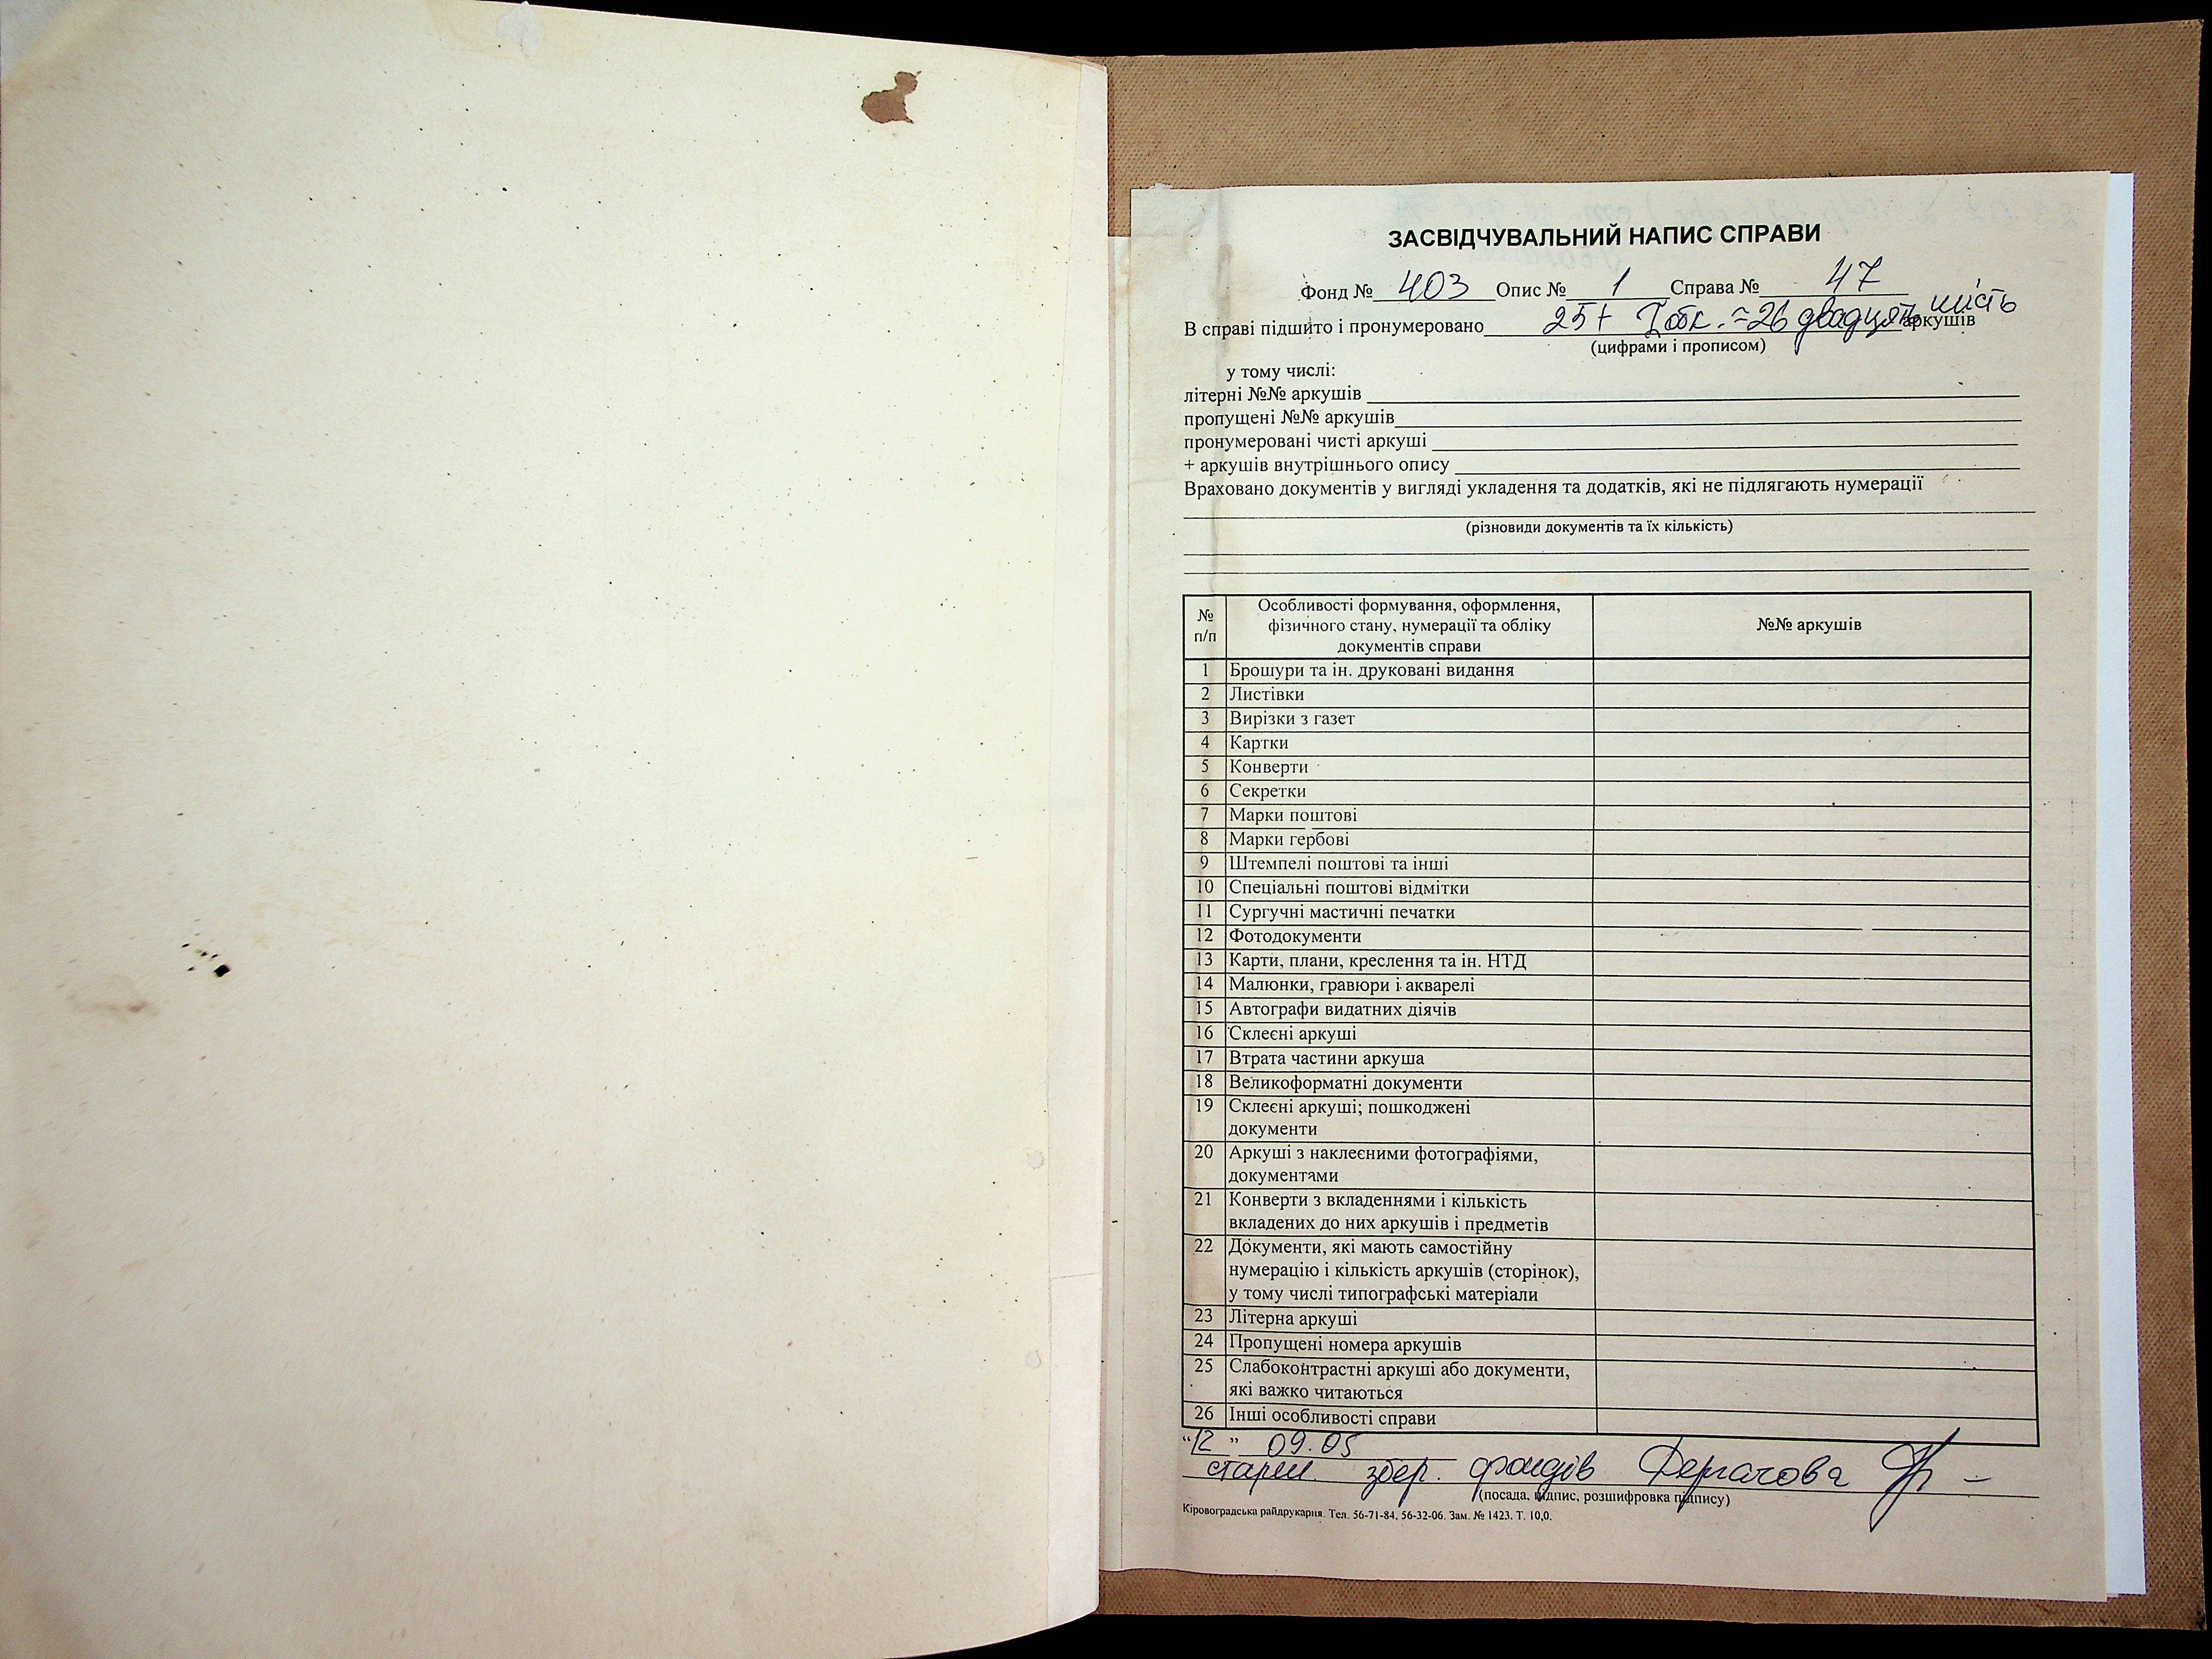 ЗАСВІДЧУВАЛЬНИЙ НАПИС СПРАВИ
Фонд № 403 Опис № 1 Справа № 47
В справі підшито і пронумеровано 25+ 1 обк. = 26 двадцять шість аркушів
(цифрами і прописом)
у тому числі:
літерні №№ аркушів
пропущені №№ аркушів
пронумеровані чисті аркуші
+ аркушів внутрішнього опису
Враховано документів у вигляді укладення та додатків, які не підлягають нумерації
(різновиди документів та їх кількість)
№ п/п Особливості формування, оформлення, фізичного стану, нумерації та обліку документів справи №№ аркушів
1 Брошури та ін. друковані видання
2 Листівки
3 Вирізки з газет
4 Картки
5 Конверти
6 Секретки
7 Марки поштові
8 Марки гербові
9 Штемпелі поштові та інші
10 Спеціальні поштові відмітки
11 Сургучні мастичні печатки
12 Фотодокументи
13 Карти, плани, креслення та ін. НТД
14 Малюнки, гравюри і акварелі
15 Автографи видатних діячів
16 Склеєні аркуші
17 Втрата частини аркуша
18 Великоформатні документи
19 Склеєні аркуші; пошкоджені
документи
20 Аркуші з наклеєними фотографіями,
документами
21 Конверти з вкладеннями і кількість
вкладених до них аркушів і предметів
22 Документи, які мають самостійну
нумерацію і кількість аркушів (сторінок),
у тому числі типографські матеріали
23 Літерна аркуші
24 Пропущені номера аркушів
25 Слабоконтрастні аркуші або документи,
які важко читаються
26 Інші особливості справи
“12” 09.05
старш. збер. фондів Дергачова
(посада, підпис, розшифровка підпису)
Кіровоградська райдрукарня. Тел. 56-71-84, 56-32-06. Зам. № 1423. Т. 10,0.